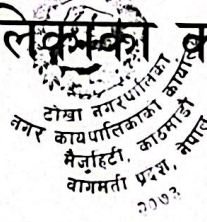 लिकाका
टोखा नगरपालिका
नगर कार्यपालिकाको कार्यालय
मैजुहिटी, काठमाडौं
वागमती प्रदेश, नेपाल
२०७३